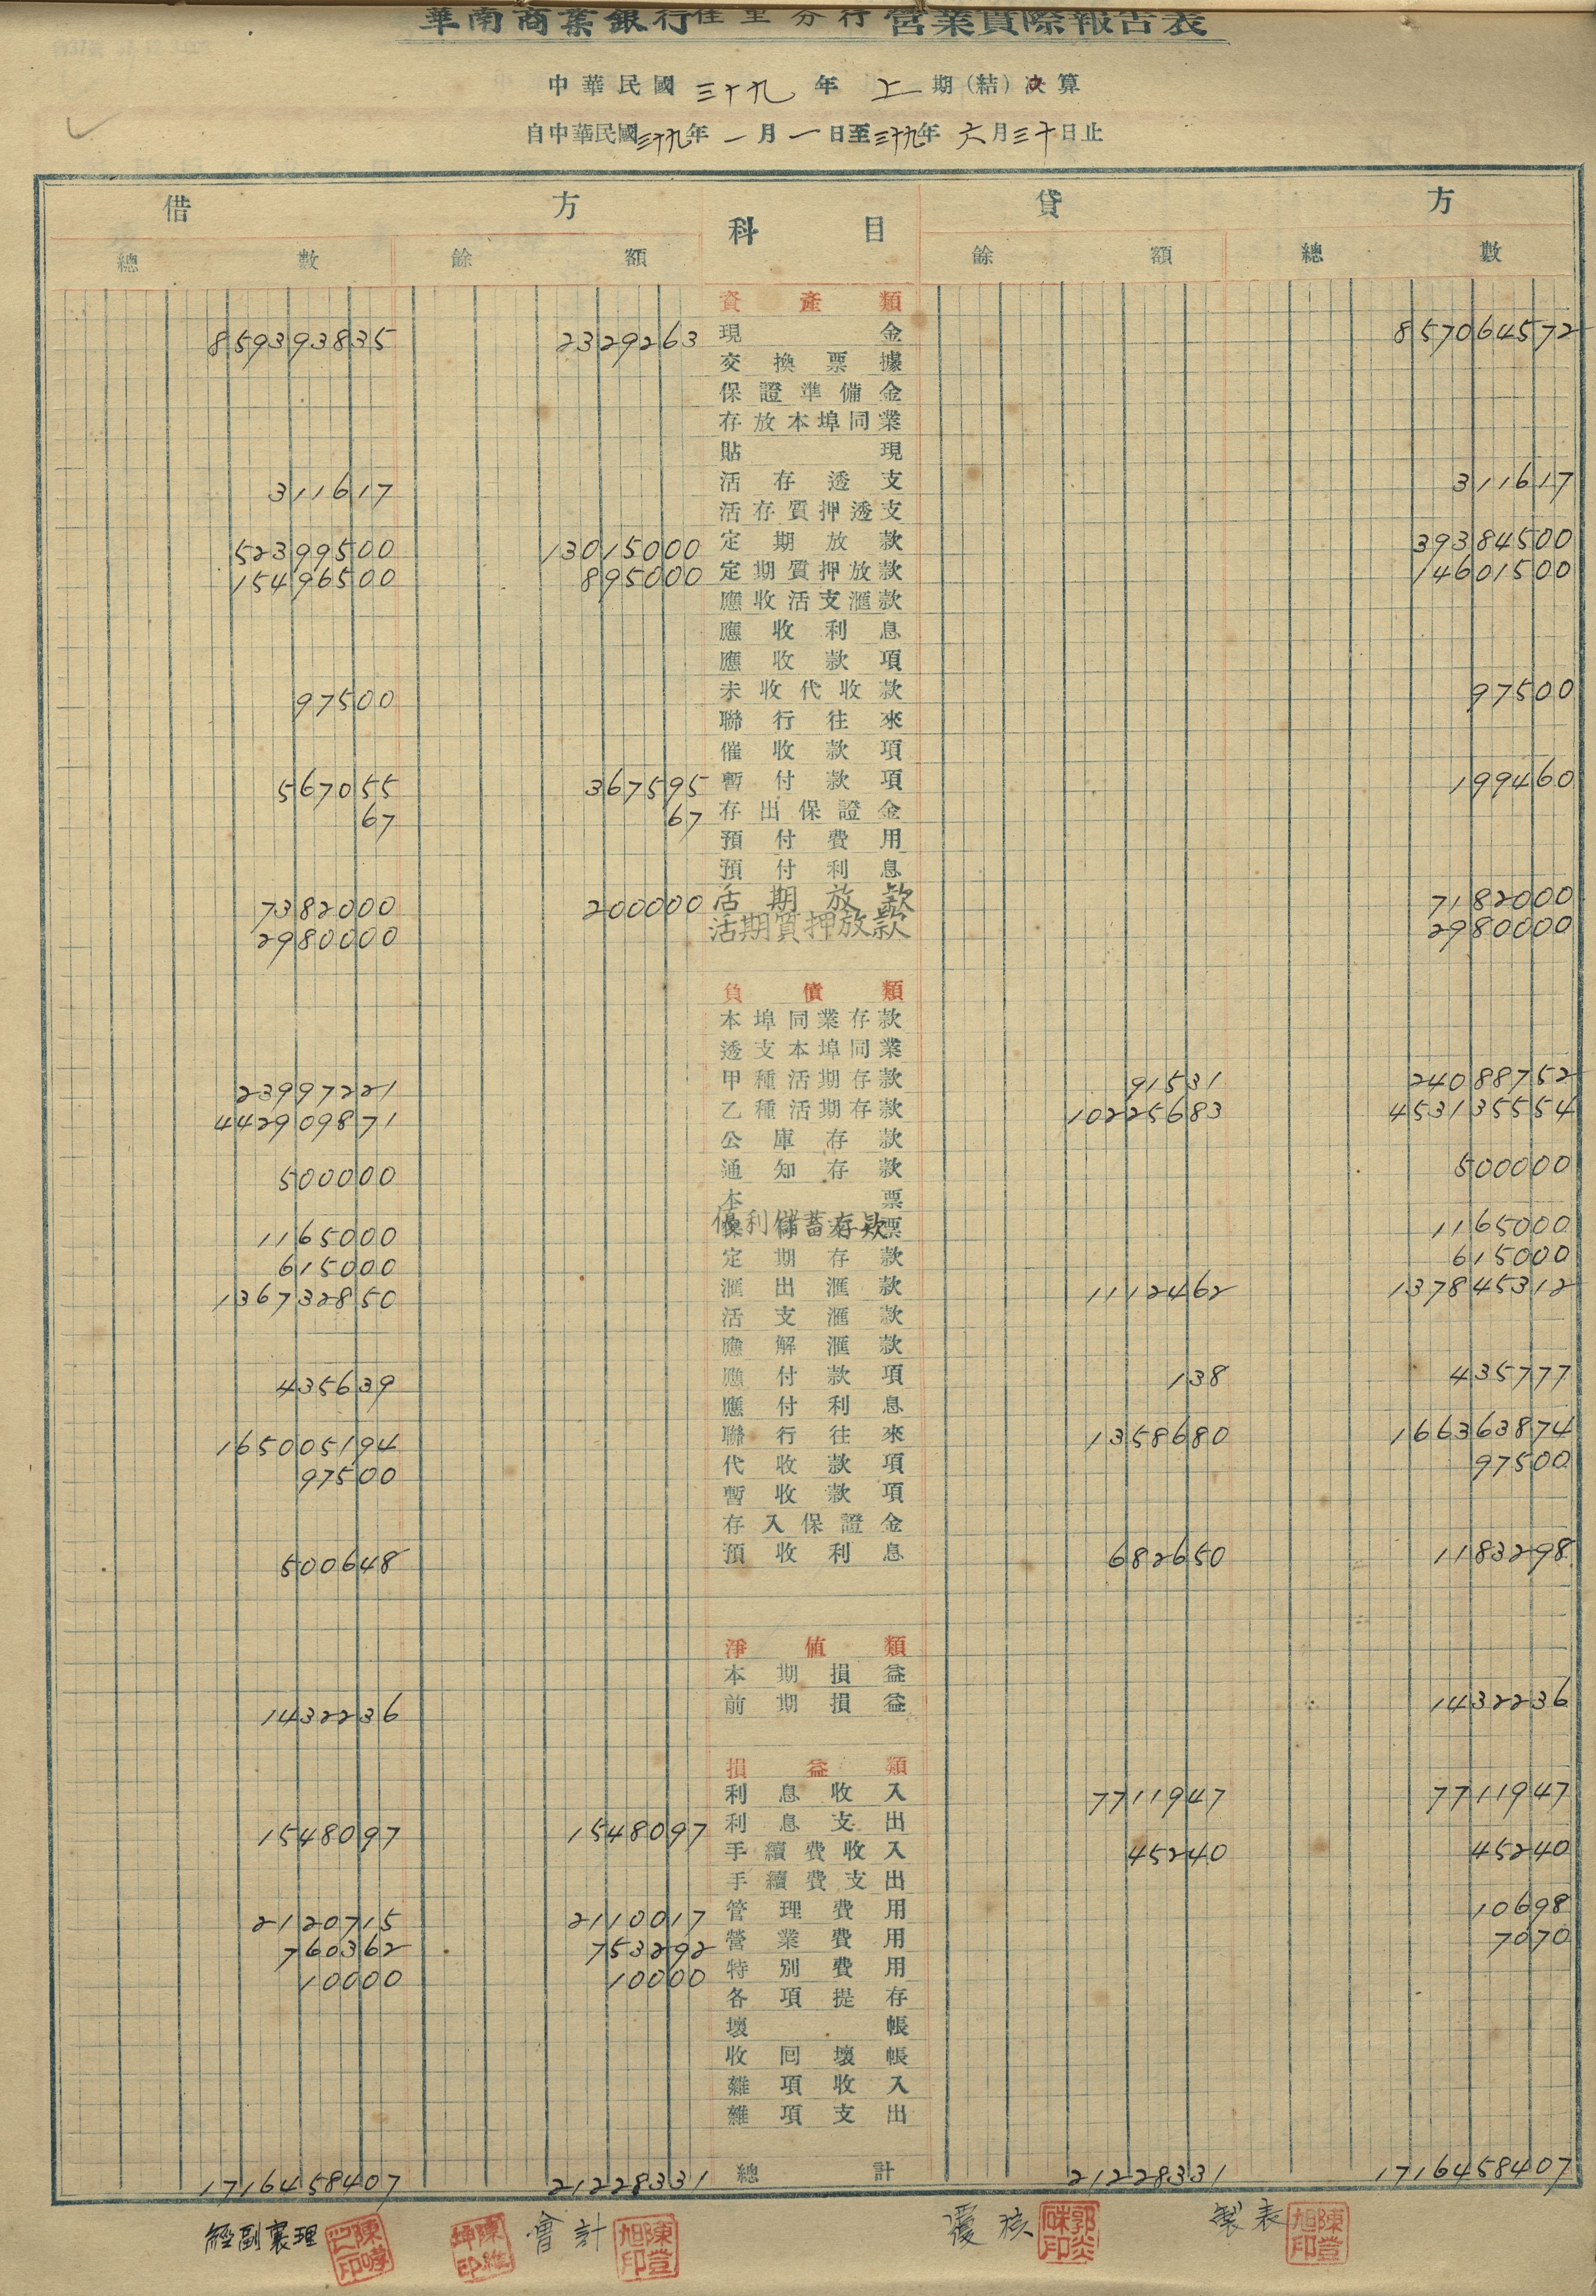 華南商業銀行佳里分行營業實際報告表
中華民國三十九年上期(結)決算
自中華民國三十九年一月一日至三十九年六月三十日止
借方 科目 貸方
總數 餘額 餘額 總數
資產類
859393835 2329263 現金 857064572
交換票據
保證準備金
存放本埠同業
貼現
311617 活存透支 311617
活存質押透支
52399500 13015000 定期放款 39384500
15496500 895000 定期質押放款 14601500
應收活支滙款
應收利息
應收款項
97500 未收代收款 97500
聯行往來
催收款項
567055 367595 暫付款項 199460
67 67 存出保證金
預付費用
預付利息
7382000 200000 活期放款 7182000
2980000 活期質押放款 2980000
負債類
本埠同業存款
透支本埠同業
23997221 甲種活期存款 91531 24088752
442909871 乙種活期存款 10225683 453135554
公庫存款
500000 通知存款 500000
本票
1165000 優利儲蓄存款 1165000
615000 定期存款 615000
136732850 滙出滙款 1112462 137845312
活支滙款
應解滙款
435639 應付款項 138 435777
應付利息
165005194 聯行往來 1358680 166363874
97500 代收款項 97500
暫收款項
存入保證金
500648 預收利息 682650 1183298
淨值類
本期損益
1432236 前期損益 1432236
損益類
利息收入 7711947 7711947
1548097 1548097 利息支出
手續費收入 45240 45240
手續費支出
2120715 2110017 管理費用 10698
760362 753292 營業費用 7070
10000 10000 特別費用
各項提存
壞帳
收回壞帳
雜項收入
雜項支出
1716458407 21228331 總計 21228331 1716458407
經副襄理 會計 陳登旭印 覆核 郭炎硃印 製表 陳登旭印